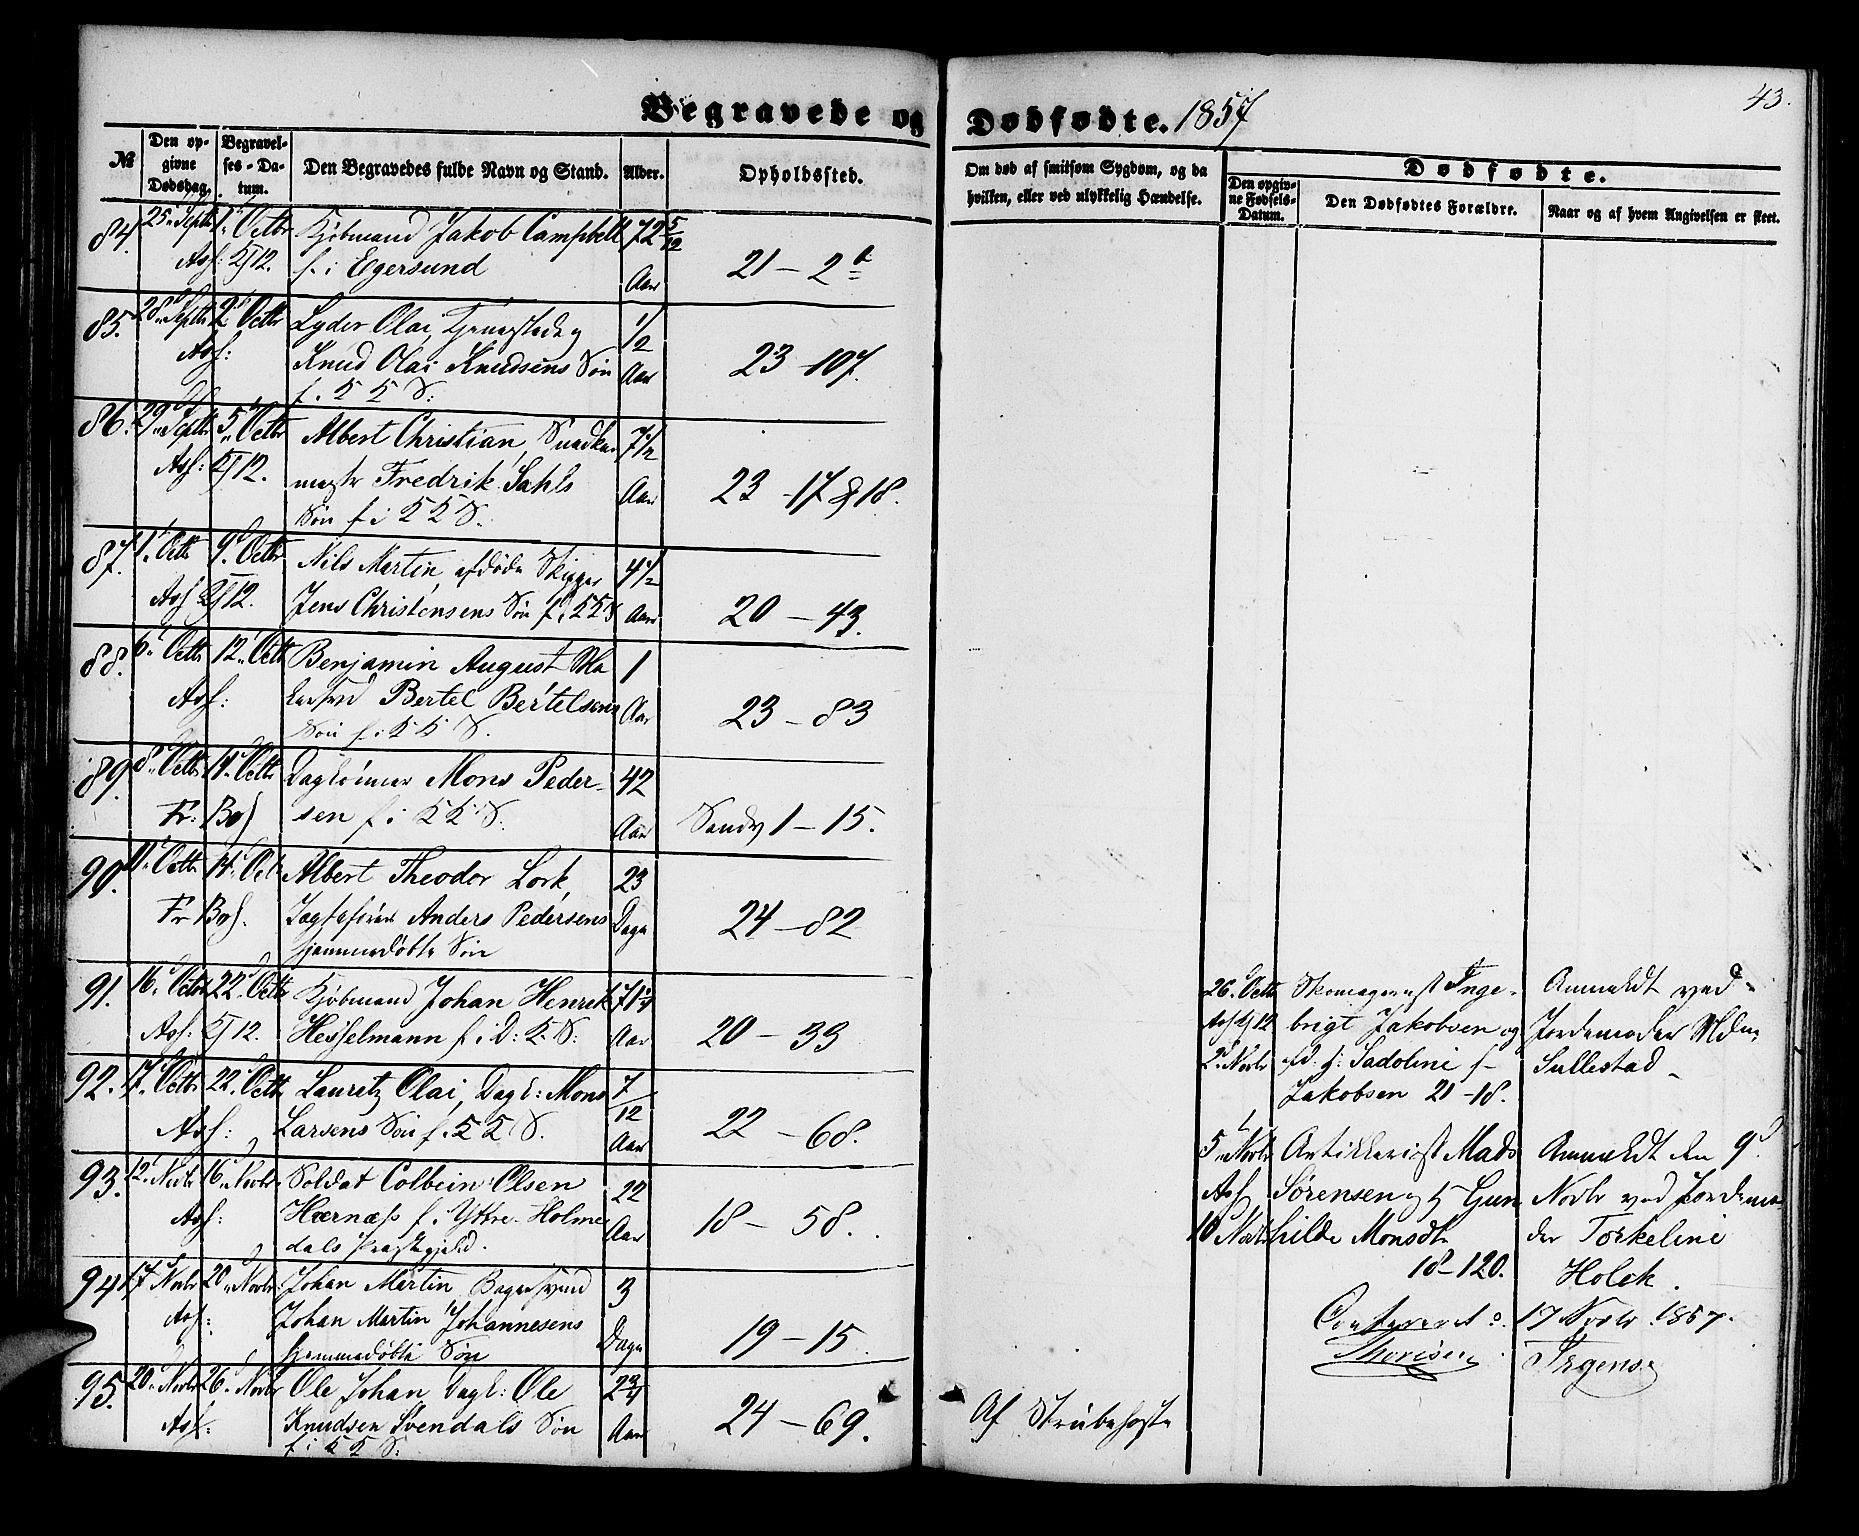 Begravede og Dødfødte. 1857
43.
№
Den opgivne Dødsdag.
Begravelses-Datum.
Den Begravedes fulde Navn og Stand.
Alder.
Opholdssted.
Om død af smitsom Sygdom, og da hvilken, eller ved ulykkelig Hændelse.
Dødfødte.
Den opgivne Fødsels-Datum.
Den Dødfødtes Forældre.
Naar og af hvem Angivelsen er skeet.
84. 25. Septbr 1. Octbr Kjøbmand Jakob Campbell 72 5/12
f. i Egersund Aar 21 - 2
85. 28. Septbr 2. Octbr Lyder Olai, 1/2
Knud Olai Knudsens Søn Aar 23 - 107.
f. i K K S:
86. 29. Septbr 5. Octbr Albert Christian, Snedker 7 1/2
mester Fredrik Sahls Aar 23 - 17 & 18.
Søn f i K K S.
87. 1. Octb 9. Octbr Nils Martin, afdøde Skipper 4 1/2
Jens Christensens Søn f. i K K S Aar 20 - 43.
88. 6. Octbr 12. Octbr Benjamin August Ma 1
lersvd Bertel Bertelsens Aar 23 - 83
Søn f. i K K S.
89. 8. Octbr 14. Octbr Daglönner Mons Peder- 42
Fr: Bos sen f. i K K S. Aar Sandv 1 - 15.
90. 11. Octbr 14. Oct Albert Theodor Lork, 23
Fr Bos. Jagtefører Anders Pedersens Dage 24 - 82
hjemmedøbte Søn
91. 16. Octbr 22. Octbr Kjøbmand Johan Henrik 71 1/4
Hesselmann f. i D: K: S: Aar 20 - 33
92. 17. Octbr 22. Octbr Lauretz Olai, Dagl: Mons 7/12
Larsens Søn f. i K K S. Aar 22 - 68.
93. 12. Novbr 16. Novbr Soldat Colbein Olsen 22
Hærnæss f. i Yttre Holme Aar 18 - 58.
dals Præstegjeld.
94 17 Novbr 20. Novbr Johan Martin Bagersvend 3
Johan Martin Johannesens Dage 19 - 15
hjemmedøbte Søn
95. 20. Novbr 26. Novbr Ole Johan Dagl: Ole 2 3/4
Knudsen Svendals Søn Aar 24 - 69.
f. i K K S:
Af Strubehoste
26. Octbr Skomagersvst Inge- Anmeldt ved
brigt Jakobsen og Jordemoder Mdm
2. Novbr Sadolini f Sullestad
Jakobsen 21 - 18.
5. Novbr Antikkvarist Mads Anmeldt den 9d
Sørensen og H Gun Novbr ved Jordemo
10 Novbr hilde Monsdtr der Torkelini
18 - 120. Holck.
Confereret 17 Novbr 1857.
Thorisen Irgens